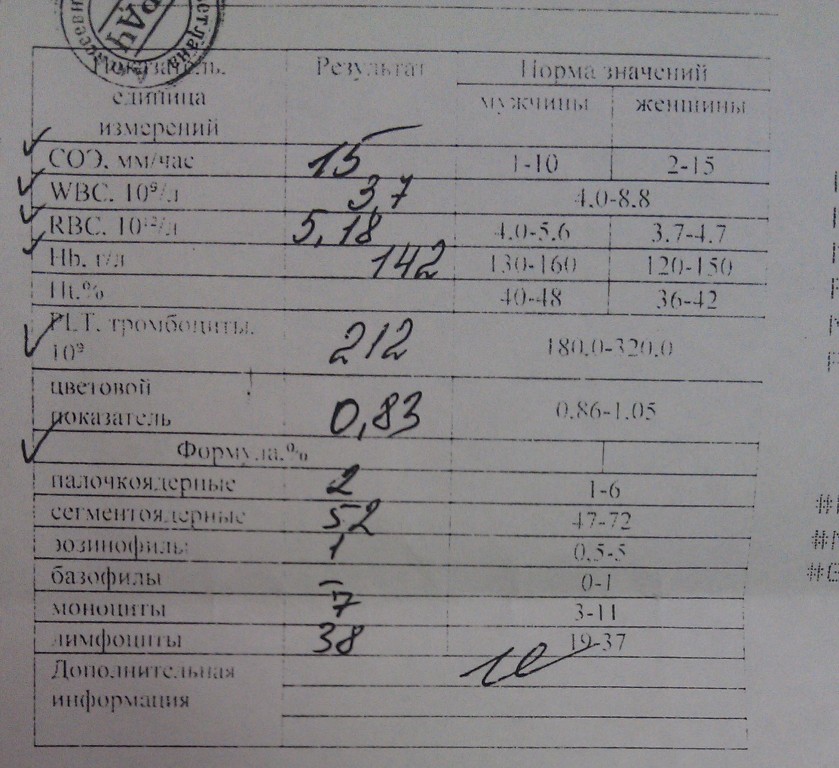 ВРАЧ
Показатель, Результат Норма значений
единица мужчины женщины
измерений
СОЭ, мм/час 15 1-10 2-15
WBC. 10⁹/л 3,7 4.0-8.8
RBC. 10¹²/л 5,18 4.0-5.6 3.7-4.7
Hb. г/л 142 130-160 120-150
Ht.% 40-48 36-42
PLT. тромбоциты. 212 180.0-320.0
10⁹
цветовой
показатель 0,83 0.86-1.05
Формула.%
палочкоядерные 2 1-6
сегментоядерные 52 47-72
эозинофилы 1 0,5-5
базофилы – 0-1
моноциты 7 3-11
лимфоциты 38 19-37
Дополнительная
информация